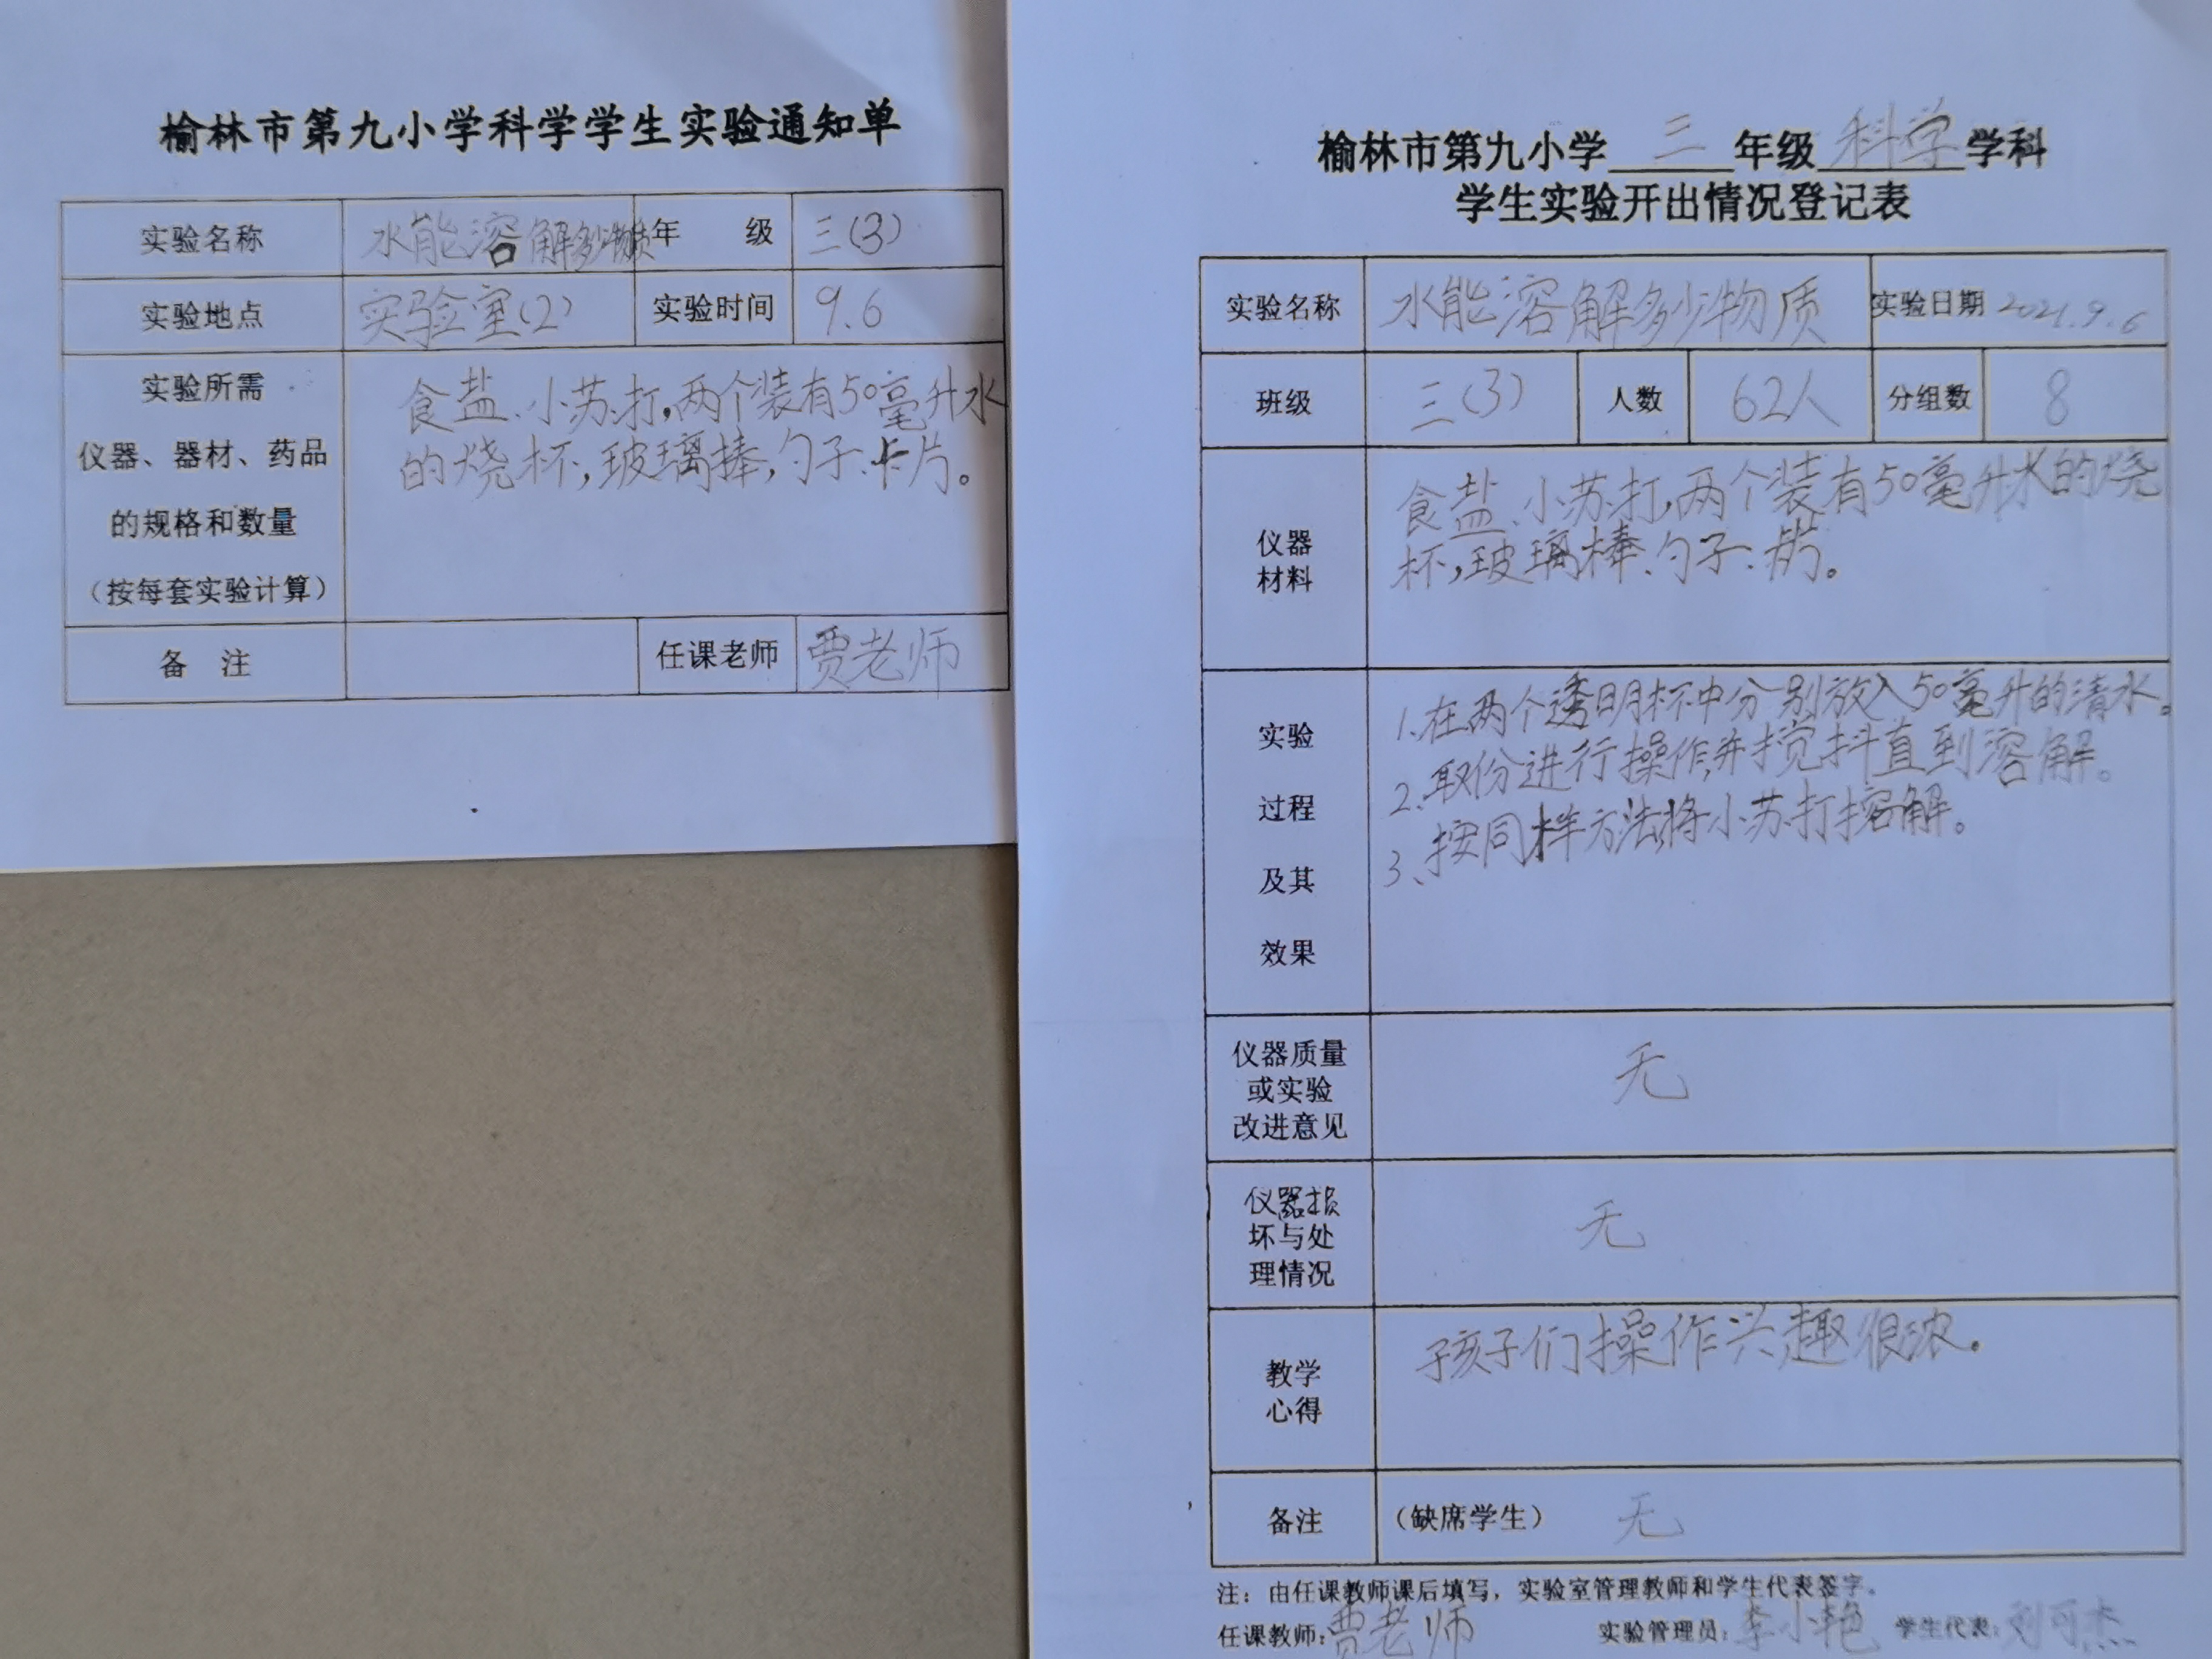 榆林市第九小学科学学生实验通知单
实验名称 水能溶解多少物质 年 级 三(3)
实验地点 实验室(2) 实验时间 9.6
实验所需
仪器、器材、药品
的规格和数量
（按每套实验计算）
食盐、小苏打,两个装有50毫升水
的烧杯,玻璃棒,勺子、卡片。
备 注 任课老师 贾老师
榆林市第九小学 三 年级 科学 学科
学生实验开出情况登记表
实验名称 水能溶解多少物质 实验日期 2021.9.6
班级 三(3) 人数 62人 分组数 8
仪器
材料
食盐、小苏打,两个装有50毫升水的烧
杯,玻璃棒、勺子、卡片。
实验
过程
及其
效果
1.在两个透明杯中分别放入50毫升的清水。
2.取份进行操作,并搅抖直到溶解。
3、按同样方法将小苏打溶解。
仪器质量
或实验
改进意见
无
仪器损
坏与处
理情况
无
教学
心得
孩子们操作兴趣很浓。
备注 （缺席学生） 无
注：由任课教师课后填写，实验室管理教师和学生代表签字。
任课教师: 贾老师 实验管理员: 李小艳 学生代表: 刘可杰